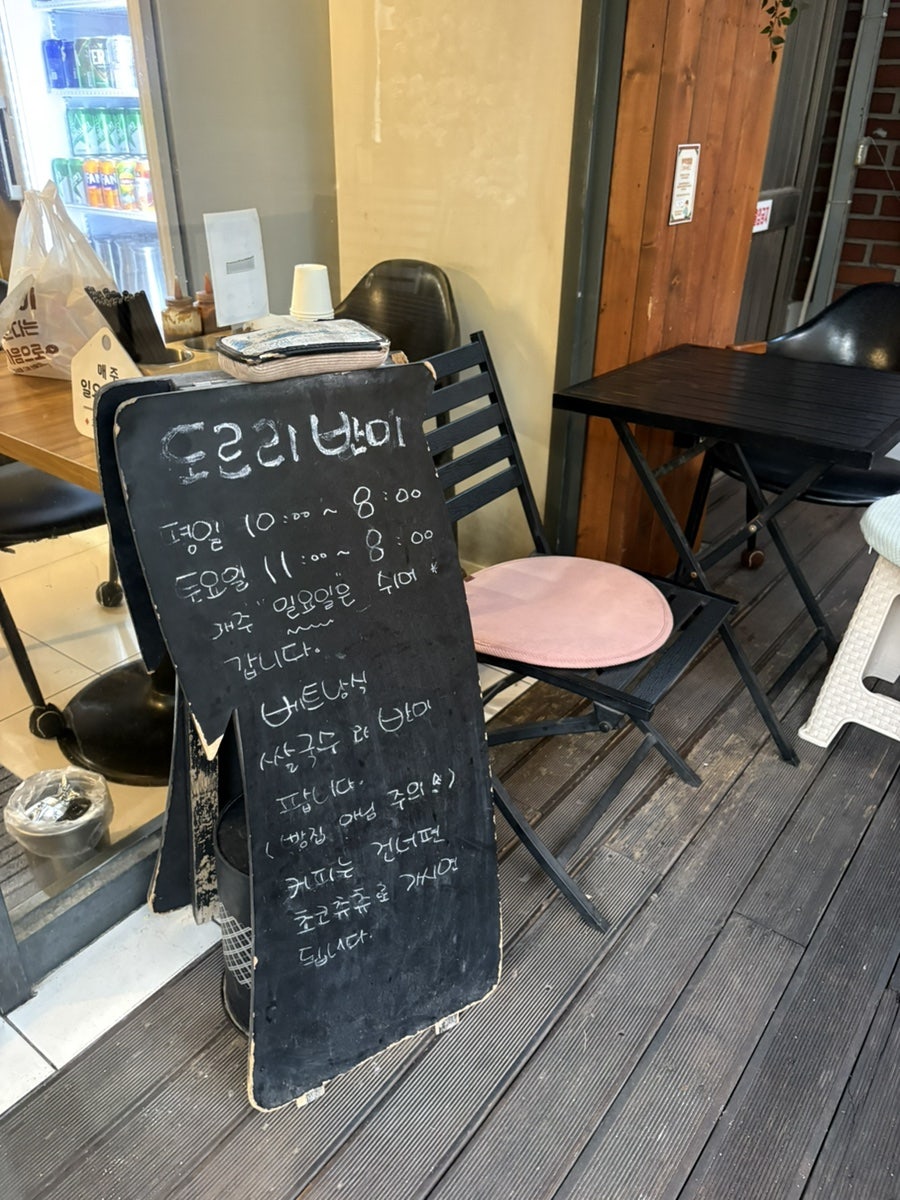 도르리 반미
평일 10:00 ~ 8:00
토요일 11:00 ~ 8:00
매주 "일요일은" 쉬어 *
갑니다.
베트남식
쌀국수 와 반미
팝니다.
( 빵집 아님 주의 !! )
커피는 건너편
초코츄츄로 가시면
됩니다.
매주